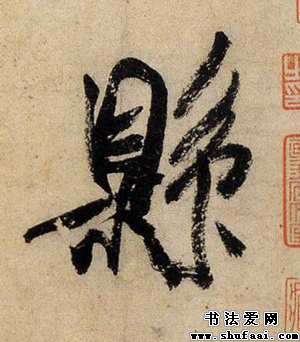 縣
书法爱网
www.shufaai.com